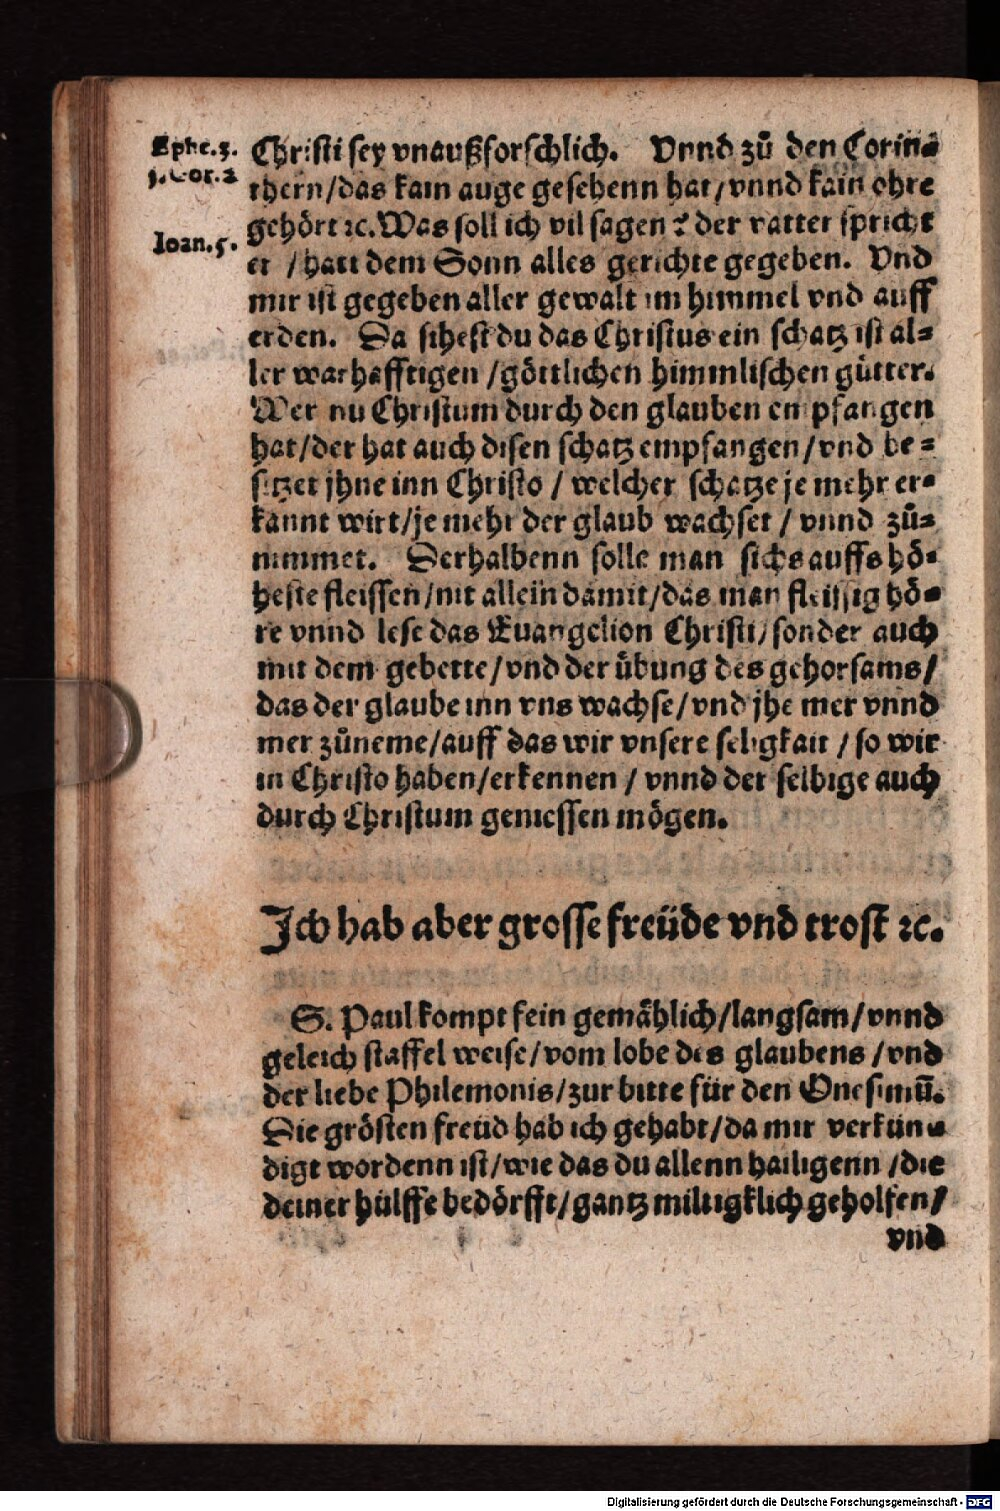 Ephe.3.
1.Cor.2
Ioan.5.
Christi sey vnaußforschlich. Vnnd zů den Corin=
thern/das kain auge gesehenn hat/vnnd kain ohre
gehört ꝛc. Was soll ich vil sagen? der vatter spricht
er /hatt dem Sonn alles gerichte gegeben. Vnd
mir ist gegeben aller gewalt im himmel vnd auff
erden. Da sihest du das Christus ein schatz ist al=
ler warhafftigen /göttlichen himmlischen gütter.
Wer nu Christum durch den glauben empfangen
hat/der hat auch disen schatz empfangen/vnd be=
sitzet jhne inn Christo / welcher schatze je mehr er=
kannt wirt/je mehr der glaub wachset / vnnd zů=
nimmet. Derhalbenn solle man sichs auffs hö=
heste fleissen/nit allein damit/das man fleissig hö=
re vnnd lese das Euangelion Christi/sonder auch
mit dem gebette/vnd der übung des gehorsams/
das der glaube inn vns wachse/vnd jhe mer vnnd
mer zůneme/auff das wir vnsere seligkait / so wir
in Christo haben/erkennen / vnnd der selbige auch
durch Christum geniessen mögen.
Ich hab aber grosse freüde vnd trost ꝛc.
S. Paul kompt fein gemählich/langsam/vnnd
geleich staffel weise/vom lobe des glaubens /vnd
der liebe Philemonis/zur bitte für den Onesimū.
Die grösten freüd hab ich gehabt/da mir verkün=
digt wordenn ist/wie das du allenn hailigenn /die
deiner hülffe bedörfft/gantz miltigklich geholfen/
vnd
Digitalisierung gefördert durch die Deutsche Forschungsgemeinschaft - DFG